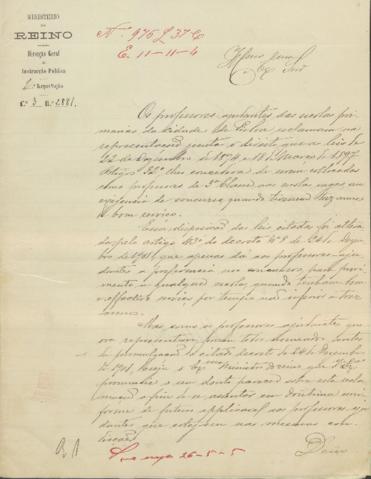 MINISTERIO
DO
REINO
Direcção Geral
de
Instrucção Publica
2ª Repartição
L.º 3 N.º 2881
N.º 975 L 37 C
E. 11-11-4
Illmo e Exmo Snr
Os professores ajudantes das escolas pri-
marias da cidade de Lisboa reclamam na
representação junta o direito que as leis de
22 de Dezembro de 1894 e 18 de Março de 1897
artigo 12º lhes concederam de serem collocados
como professores de 2ª classe nas escolas vagas, em
de concurso quando tivessem tres annos
de bom serviço.
Essa disposição das leis citadas foi altera-
da pelo artigo 43º do decreto nº 8 de 24 de Dezem-
bro de 1901 que apenas dá aos professores aju-
dantes a preferencia no para provi-
mento de qualquer escola, quando tenham bom
e effectivo serviço por tempo não inferior a tres
annos.
Mas, como os professores ajudantes que
na representação foram todos nomeados antes
da promulgação do citado decreto de 24 de Dezembro
de 1901, deseja S. Exª o Ministro do Reino que V. Exª
pronuncie o seu douto parecer sobre esta
a fim de se assentar em doutrina uni-
forme de futura applicação aos professores aju-
dantes que estejam nas mesmas con-
dições.
Deus
26-5-5